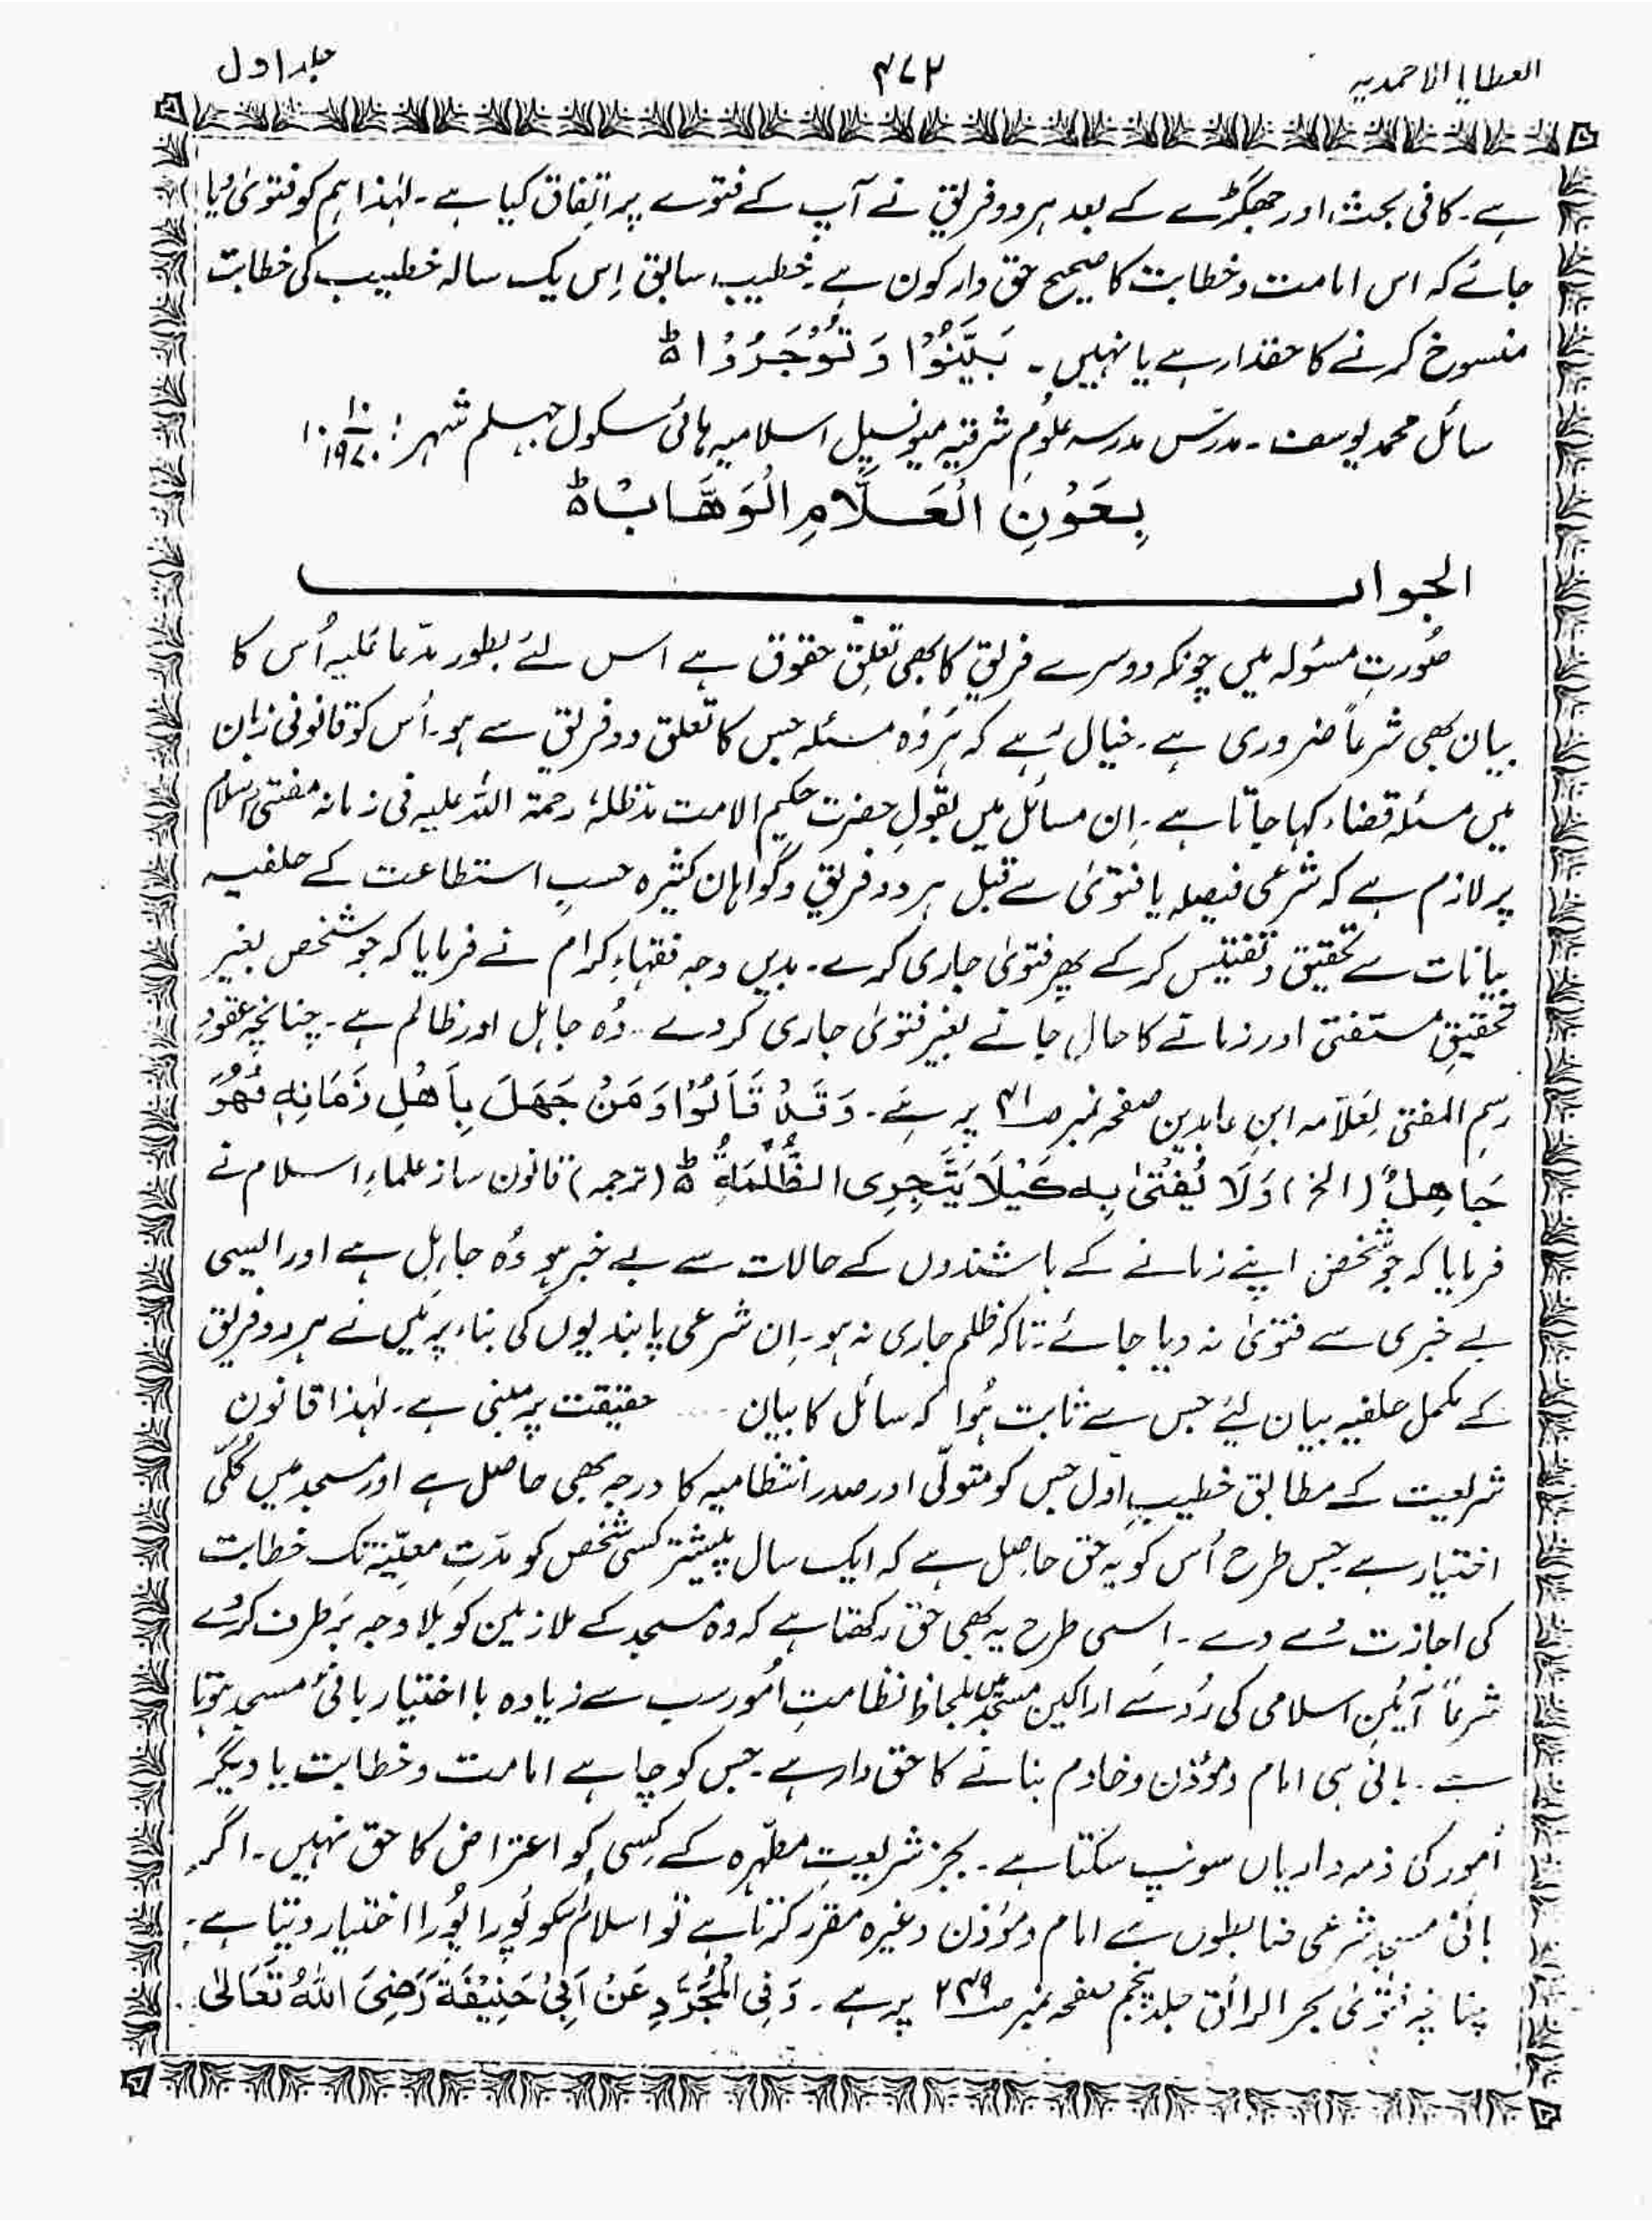 العطایا الاحمدیہ
۴۷۲
جلد اول
ہے۔ کافی بحث اور جھگڑے کے بعد ہر دو فریق نے آپ کے فتوے پر اتفاق کیا ہے۔ لہٰذا ہم کو فتویٰ دیا
جائے کہ اس امامت و خطابت کا صحیح حق دار کون ہے۔ خطیب سابق اِس یک سالہ خطیب کی خطابت
منسوخ کرنے کا حقدار ہے یا نہیں۔ بَیِّنُوْا وَتُوْجَرُوْا ہ
سائل محمد یوسف۔ مدرّس مدرسہ علومِ شرقیہ میونسپل اسلامیہ ہائی سکول جہلم شہر : ۱۰-۱۰-۱۹۷۰
بِعَوْنِ الْعَلَّامِ الْوَهَّابْ ہ
الجواب
صُورتِ مسئولہ میں چونکہ دوسرے فریق کا بھی تعلّقِ حقوق ہے اس لئے بطور مدّعا عَلیہ اُس کا
بیان بھی شرعاً ضروری ہے۔ خیال رہے کہ ہر وُہ مسئلہ جس کا تعلق دو فریق سے ہو۔ اُس کو قانونی زبان
میں مسئلہ قضاء کہا جاتا ہے۔ اِن مسائل میں بقولِ حضرت حکیم الامت مدّظلہٗ رحمۃ اللہ علیہ فی زمانہ مفتی اسلام
پر لازم ہے کہ شرعی فیصلہ یا فتوٰی سے قبل ہر دو فریق و گواہانِ کثیرہ حسبِ استطاعت کے حلفیہ
بیانات سے تحقیق و تفتیش کر کے پھر فتویٰ جاری کرے۔ بدیں وجہ فقہاءِ کرام نے فرمایا کہ جو شخص بغیر
تحقیقِ مستفتی اور زمانے کا حال جانے بغیر فتویٰ جاری کر دے۔ وُہ جاہل اور ظالم ہے۔ چنانچہ عقودِ
رسم المفتی لِعَلّامہ ابنِ عابدین صفحہ نمبر صـ۴۱ پر ہے۔ وَقَدْ قَالُوْا وَمَنْ جَهَلَ بِاَهْلِ زَمَانِهٖ فَهُوَ
جَاهِلٌ (الخ) وَلَا یُفْتٰی بِهٖ كَیْلَا یَتَّجِرِی الظُّلْمَةُ ہ (ترجمہ) قانون ساز علماءِ اسلام نے
فرمایا کہ جو شخص اپنے زمانے کے باشندوں کے حالات سے بے خبر ہو وُہ جاہل ہے اور ایسی
بے خبری سے فتویٰ نہ دیا جائے۔ تاکہ ظلم جاری نہ ہو۔ اِن شرعی پابندیوں کی بناء پر میں نے ہر دو فریق
کے مکمل حلفیہ بیان لیئے جس سے ثابت ہُوا کہ سائل کا بیان .... حقیقت پر مبنی ہے۔ لہٰذا قانونِ
شریعت کے مطابق خطیبِ اوّل جس کو متولّی اور صدر انتظامیہ کا درجہ بھی حاصل ہے اور مسجد میں کُلّی
اختیار ہے جس طرح اُس کو یہ حق حاصل ہے کہ ایک سال پیشتر کسی شخص کو مدّتِ معیّنہ تک خطابت
کی اجازت دے دے۔ اِسی طرح یہ بھی حق رکھتا ہے کہ وہ مسجد کے ملازمین کو بلا وجہ برطرف کر دے
شرعاً آئینِ اسلامی کی رُو سے اراکینِ مسجد میں بلحاظ نظامتِ اُمور سب سے زیادہ با اختیار بانیٔ مسجد ہوتا
ہے۔ بانی ہی امام و مؤذن و خادم بنانے کا حق دار ہے۔ جس کو چاہے امامت و خطابت یا دیگر
اُمور کی ذمہ داریاں سونپ سکتا ہے۔ بجز شریعتِ مطہّرہ کے کِسی کو اعتراض کا حق نہیں۔ اگر
بانیٔ مسجد شرعی ضابطوں سے امام و مؤذن وغیرہ مقرر کرتا ہے تو اسلام اُسکو پُورا پُورا اختیار دیتا ہے۔
چنانچہ فتوٰی بحر الرائق جلد پنجم صفحہ نمبر صـ۲۴۹ پر ہے۔ وَفِی الْمُجَرَّدِ عَنْ اَبِیْ حَنِیْفَةَ رَضِیَ اللهُ تَعَالٰی